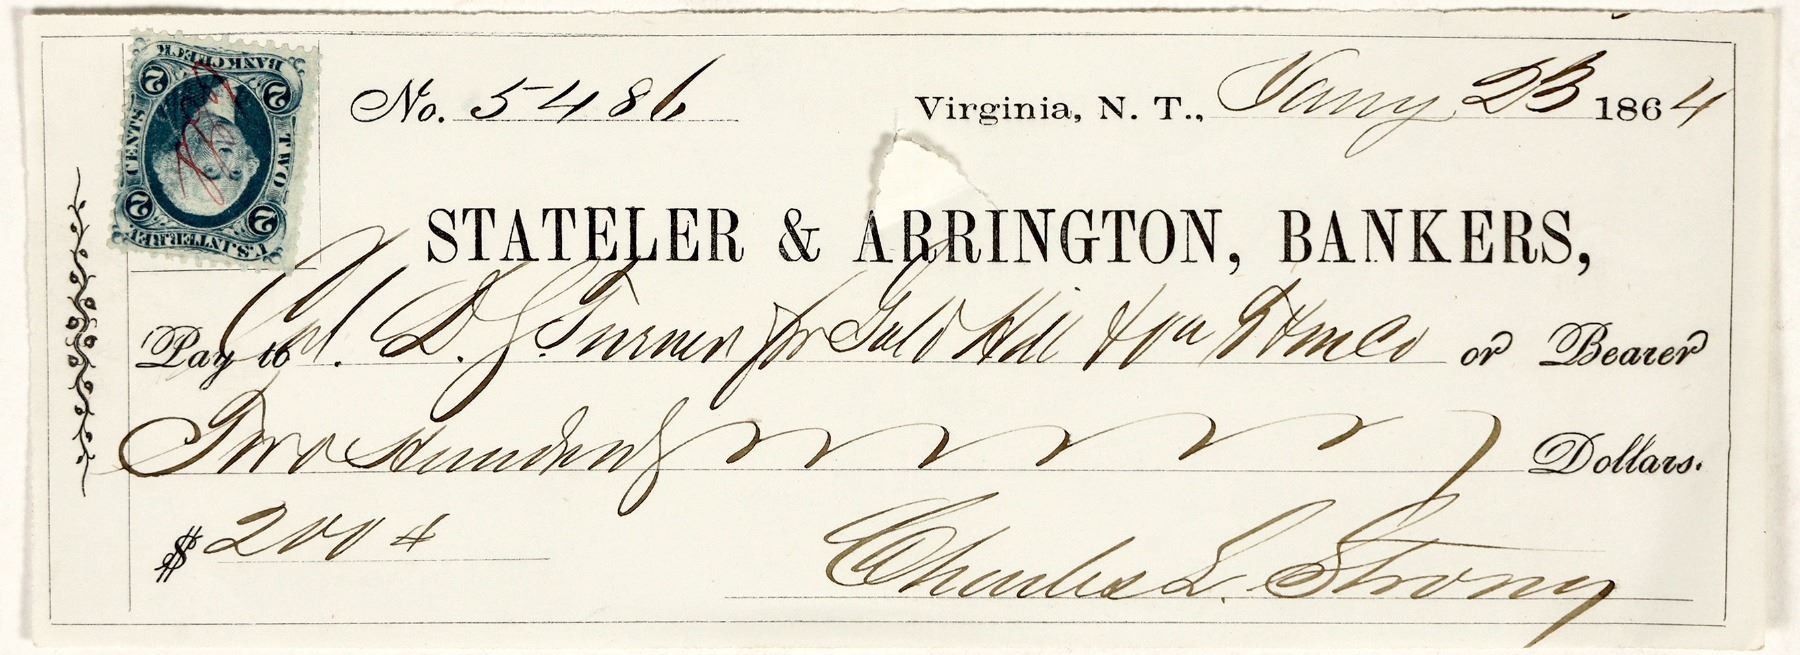 BANK CHECK
2 2
CENTS TWO
2 2
U.S. INTER. REV.
No. 5486 Virginia, N. T., Jany 23 1864
STATELER & ARRINGTON, BANKERS,
Pay to Col. D. S. Turner for Gold Hill or Bearer
Two Hundred Dollars.
$ 200
Charles L. Strong